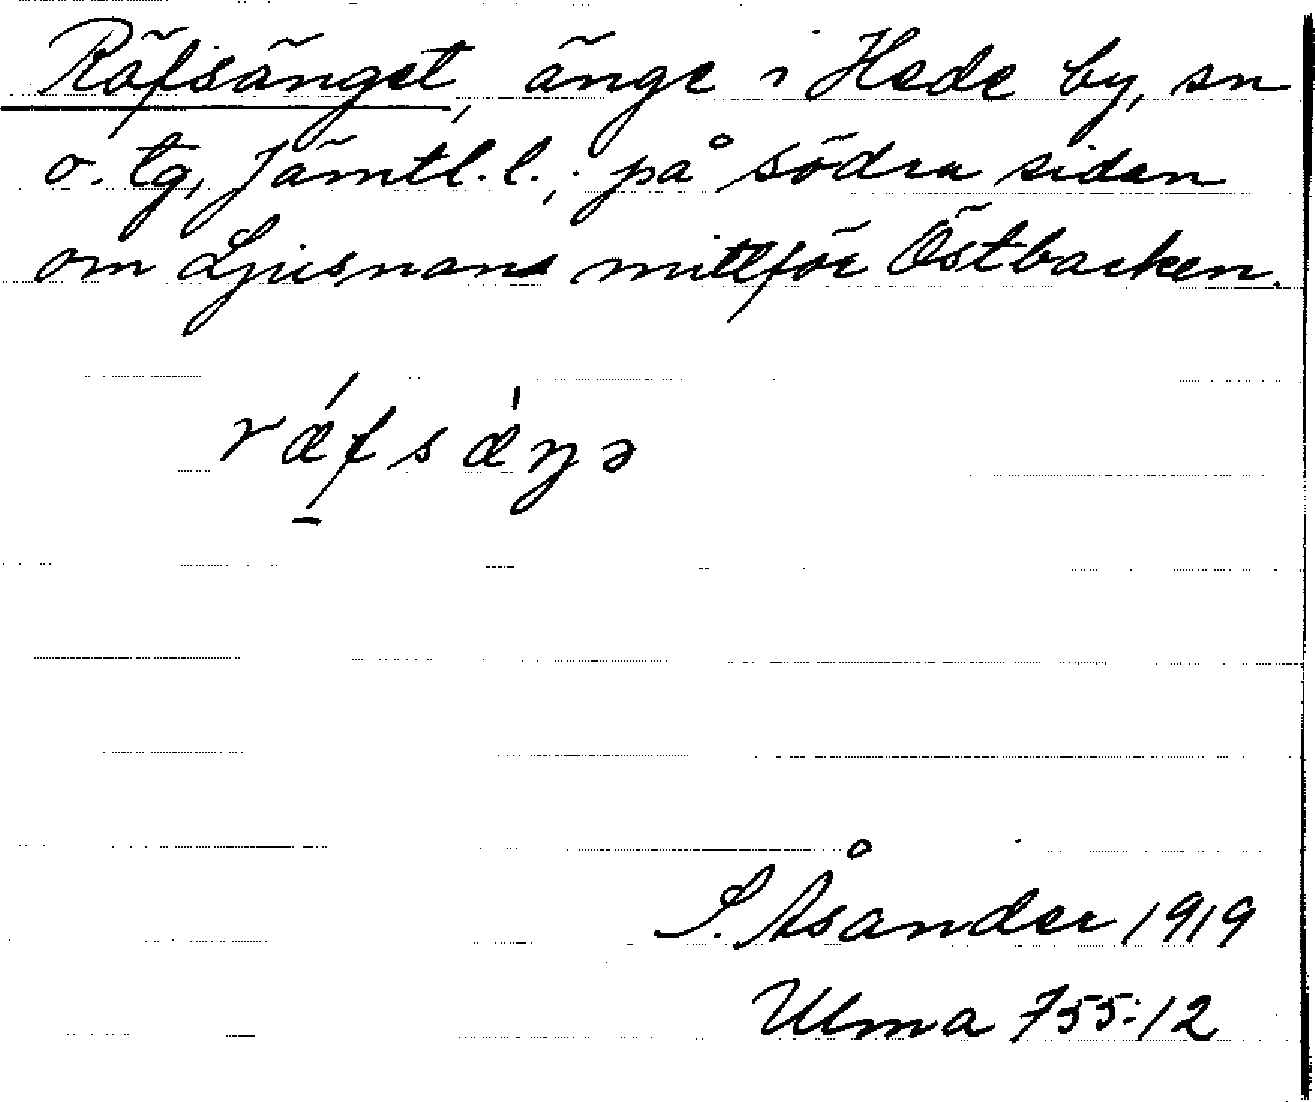 Räfsänget, änge i Hede by, sn
o. tg, Jämtl. l.; på södra sidan
om Ljusnans mittför Östbacken.
rǽfsæ̍ŋə
S. Åsander 1919
Ulma 755:12